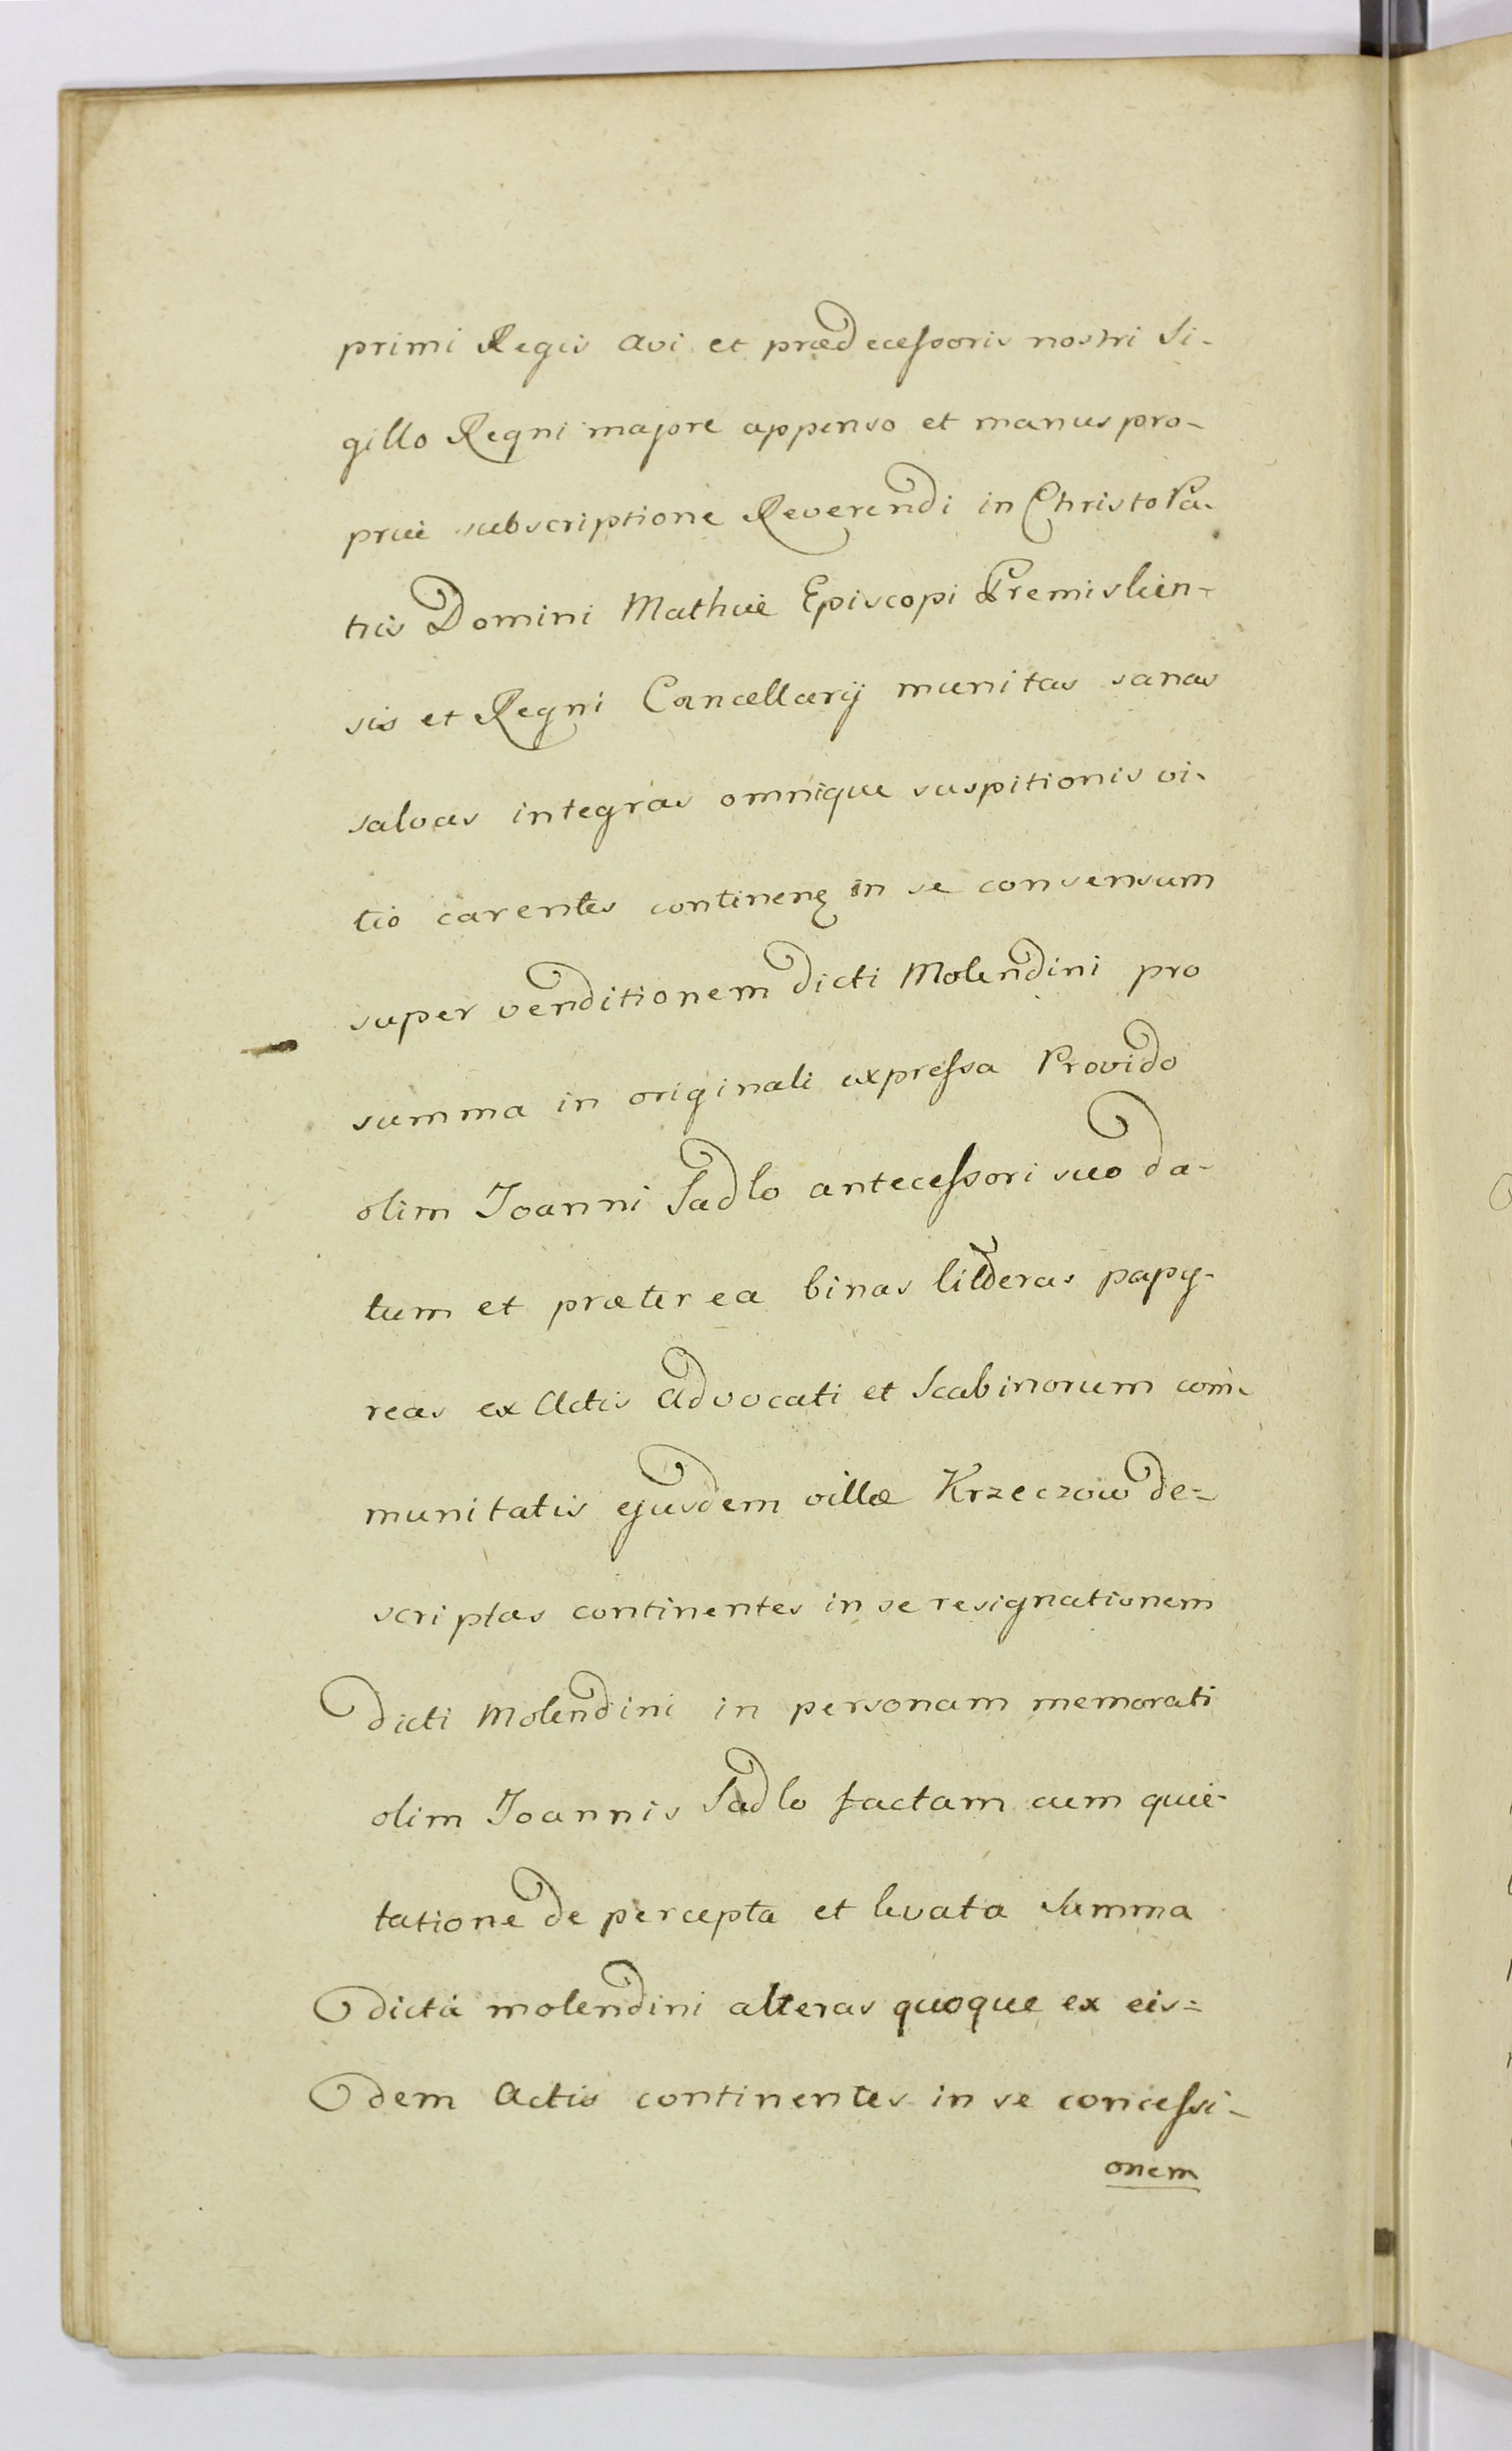 primi Regis avi et prædecessoris nostri Si-
gillo Regni majore appenso et manus pro-
priæ subscriptione Reverendi in Christo Pa-
tris Domini Mathiæ Episcopi Premislien-
sis et Regni Cancellarij munitas sanas
salvas integras omnique suspitionis vi-
tio carentes continen in se consensum
super venditionem dicti Molendini pro
summa in originali expressa Provido
olim Joanni Sadlo antecessori suo da-
tum et præterea binas litteras papy-
reas ex Actis Advocati et Scabinorum com-
munitatis ejusdem villæ Krzeczow de=
scriptas continentes in se resignationem
dicti Molendini in personam memorati
olim Joannis Sadlo factam cum quie-
tatione de percepta et levata Summa
dicti molendini alteras quoque ex eis=
dem Actis continentes in se concessi-
onem